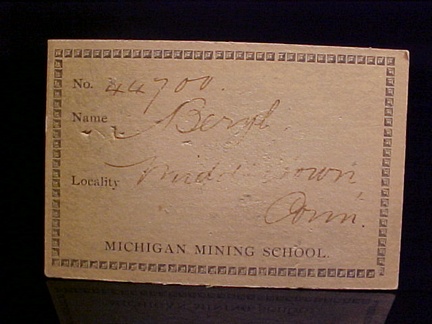 No. 44700.
Name Beryl.
Locality Middletown
Conn.
MICHIGAN MINING SCHOOL.